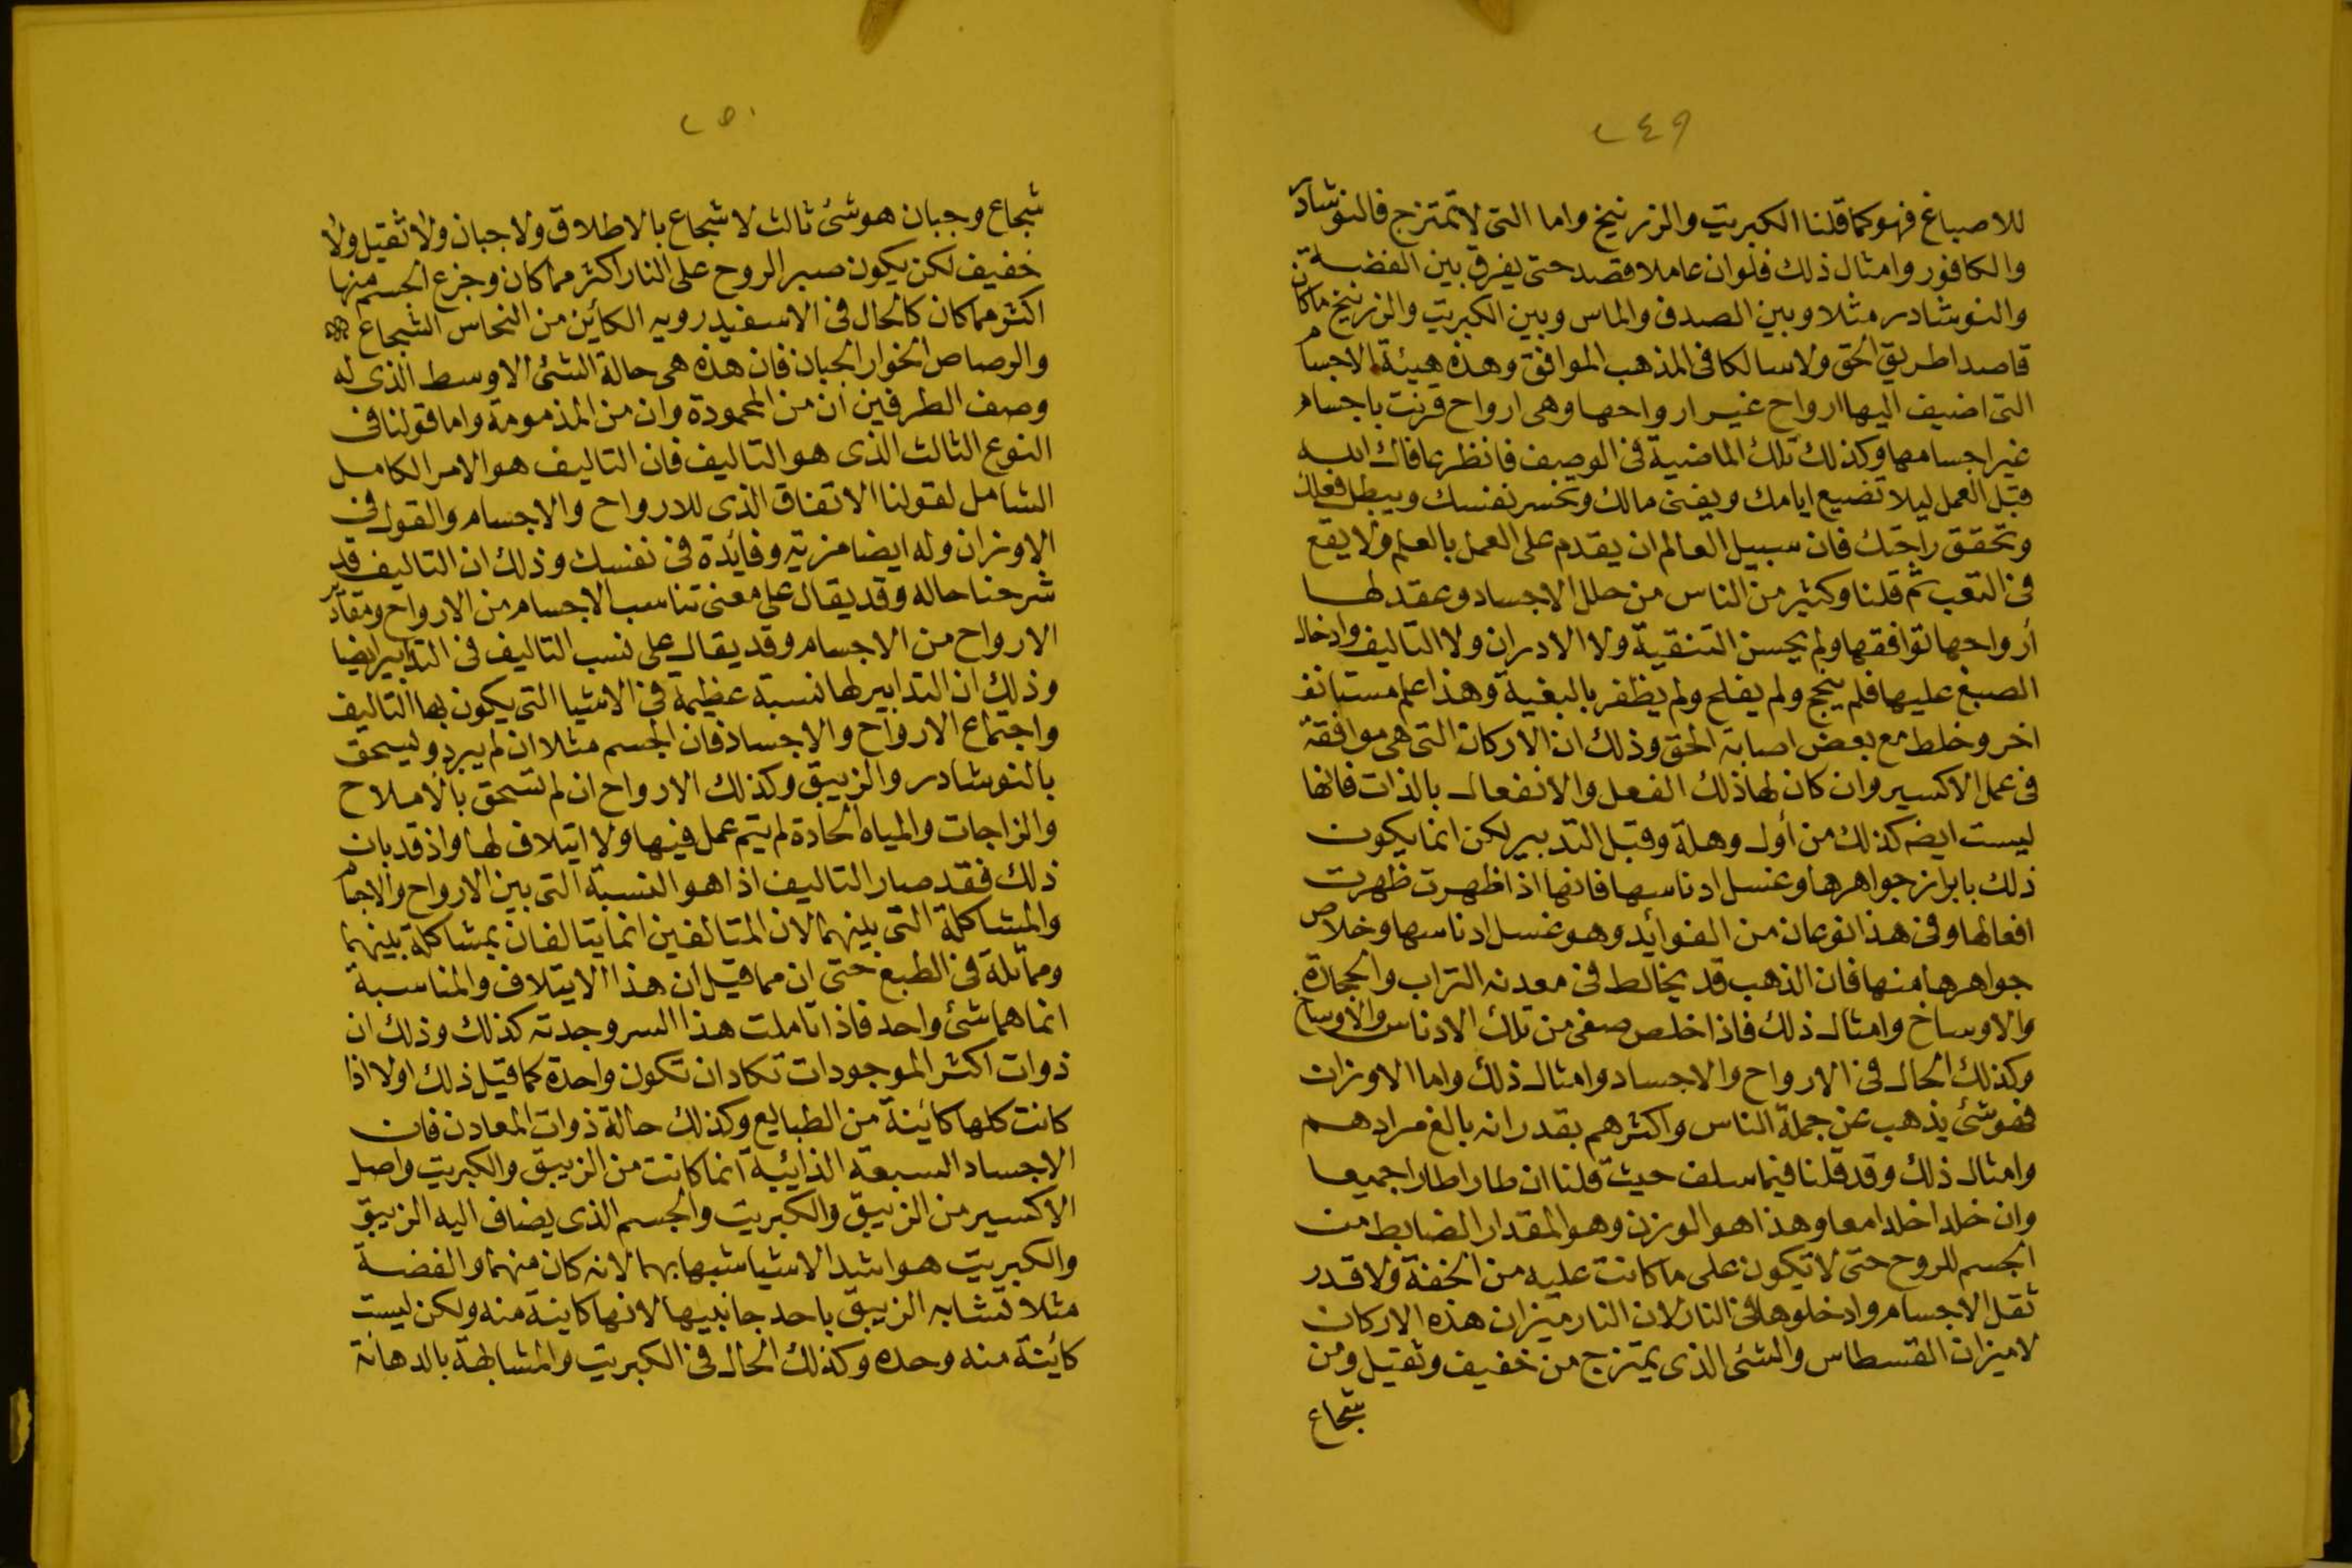 ٢٤٩
للاصباغ فهو كما قلنا الكبريت والزرنيخ واما التى لا تمتزج فالنوشادر
والكافور وامثال ذلك فلو ان عاملا قصد حتى يفرق بين الفضة
والنوشادر مثلا وبين الصدف والماس وبين الكبريت والزرنيخ ما كان
قاصدا طريق الحق ولا سالكا فى المذهب الموافق وهذه هيئة الاجسام
التى اضيف اليها ارواح غير ارواحها وهى ارواح قرنت باجسام
غير اجسامها وكذلك تلك الماضية فى الوصف فانظر عافاك الله
قبل العمل ليلا تضيع ايامك ويفنى مالك وتخسر نفسك ويبطل فعلك
وتحقق راحتك فان سبيل العالم ان يقدم على العمل بالعلم ولا يقع
فى التعب ثم قلنا وكثير من الناس من حلل الاجساد وعقد لها
أرواحها توافقها ولم يحسن التنقية ولا الادران ولا التاليف وادخال
الصبغ عليها فلم ينجح ولم يفلح ولم يظفر بالبغية وهذا علم مستانف
اخر وخلط مع بعض اصابة الحق وذلك ان الاركان التى هى موافقة
فى عمل الاكسير وان كان لها ذلك الفعل والانفعال بالذات فانها
ليست ايضه كذلك من أول وهلة وقبل التدبير لكن انما يكون
ذلك بابراز جواهرها وغسل ادناسها فانها اذا ظهرت ظهرت
افعالها وفى هذا نوعان من الفوائد وهو غسل ادناسها وخلاص
جواهرها منها فان الذهب قد يخالط فى معدنه التراب والحجارة
والاوساخ وامثال ذلك فاذا خلص صفى من تلك الادناس والاوساخ
وكذلك الحال فى الارواح والاجساد وامثال ذلك واما الاوزان
فهو شئ يذهب عن جملة الناس واكثرهم بقدر انه بالغ مرادهم
وامثال ذلك وقد قلنا فيما سلف حيث قلنا ان طارا طارا جميعا
وان خلدا خلدا معا وهذا هو الوزن وهو المقدار الضابط من
الجسم للروح حتى لا تكون على ما كانت عليه من الخفة ولا قدر
ثقل الاجسام وادخلوها فى النار لان النار ميزان هذه الاركان
لا ميزان القسطاس والشئ الذى يمتزج من خفيف وثقيل ومن
شجاع
٢٥٠
شجاع وجبان هو شئ ثالث لا شجاع بالاطلاق ولا جبان ولا ثقيل ولا
خفيف لكن يكون صبر الروح على النار اكثر مما كان وجزع الجسم منها
اكثر مما كان كالحال فى الاسفيدرويه الكائن من النحاس الشجاع
والرصاص الخوار الجبان فان هذه هى حالة الشئ الاوسط الذى له
وصف الطرفين ان من المحمودة وان من المذمومة واما قولنا فى
النوع الثالث الذى هو التاليف فان التاليف هو الامر الكامل
الشامل لقولنا الاتفاق الذى للارواح والاجسام والقول فى
الاوزان وله ايضا مزية وفائدة فى نفسك وذلك ان التاليف قد
شرحنا حاله وقد يقال على معنى تناسب الاجسام من الارواح ومقادير
الارواح من الاجسام وقد يقال على نسب التاليف فى التدابير ايضا
وذلك ان التدابير لها نسبة عظيمة فى الاشيا التى يكون بها التاليف
واجتماع الارواح والاجساد فان الجسم مثلا ان لم يبرد ويسحق
بالنوشادر والزيبق وكذلك الارواح ان لم تسحق بالاملاح
والزاجات والمياه الحادة لم يتم عمل فيها ولا ايتلاف لها واذ قد بان
ذلك فقد صار التاليف اذا هو النسبة التى بين الارواح والاجسام
والمشاكلة التى بينهما لان المتالفين انما يتالفان بمشاكلة بينهما
ومماثلة فى الطبع حتى ان مما قيل ان هذا الايتلاف والمناسبة
انما هما شئ واحد فاذا تاملت هذا السر وجدته كذلك وذلك ان
ذوات اكثر الموجودات تكاد ان تكون واحدة كما قيل ذلك اولا اذا
كانت كلها كائنة من الطبايع وكذلك حالة ذوات المعادن فان
الاجساد السبعة الذائبة انما كانت من الزيبق والكبريت واصل
الاكسير من الزيبق والكبريت والجسم الذى يضاف اليه الزيبق
والكبريت هو اشد الاشيا شبها بهما لانه كان منهما والفضة
مثلا تشابه الزيبق باحد جانبيها لانها كاينة منه ولكن ليست
كائنة منه وحده وكذلك الحال فى الكبريت والمشابهة بالدهانة